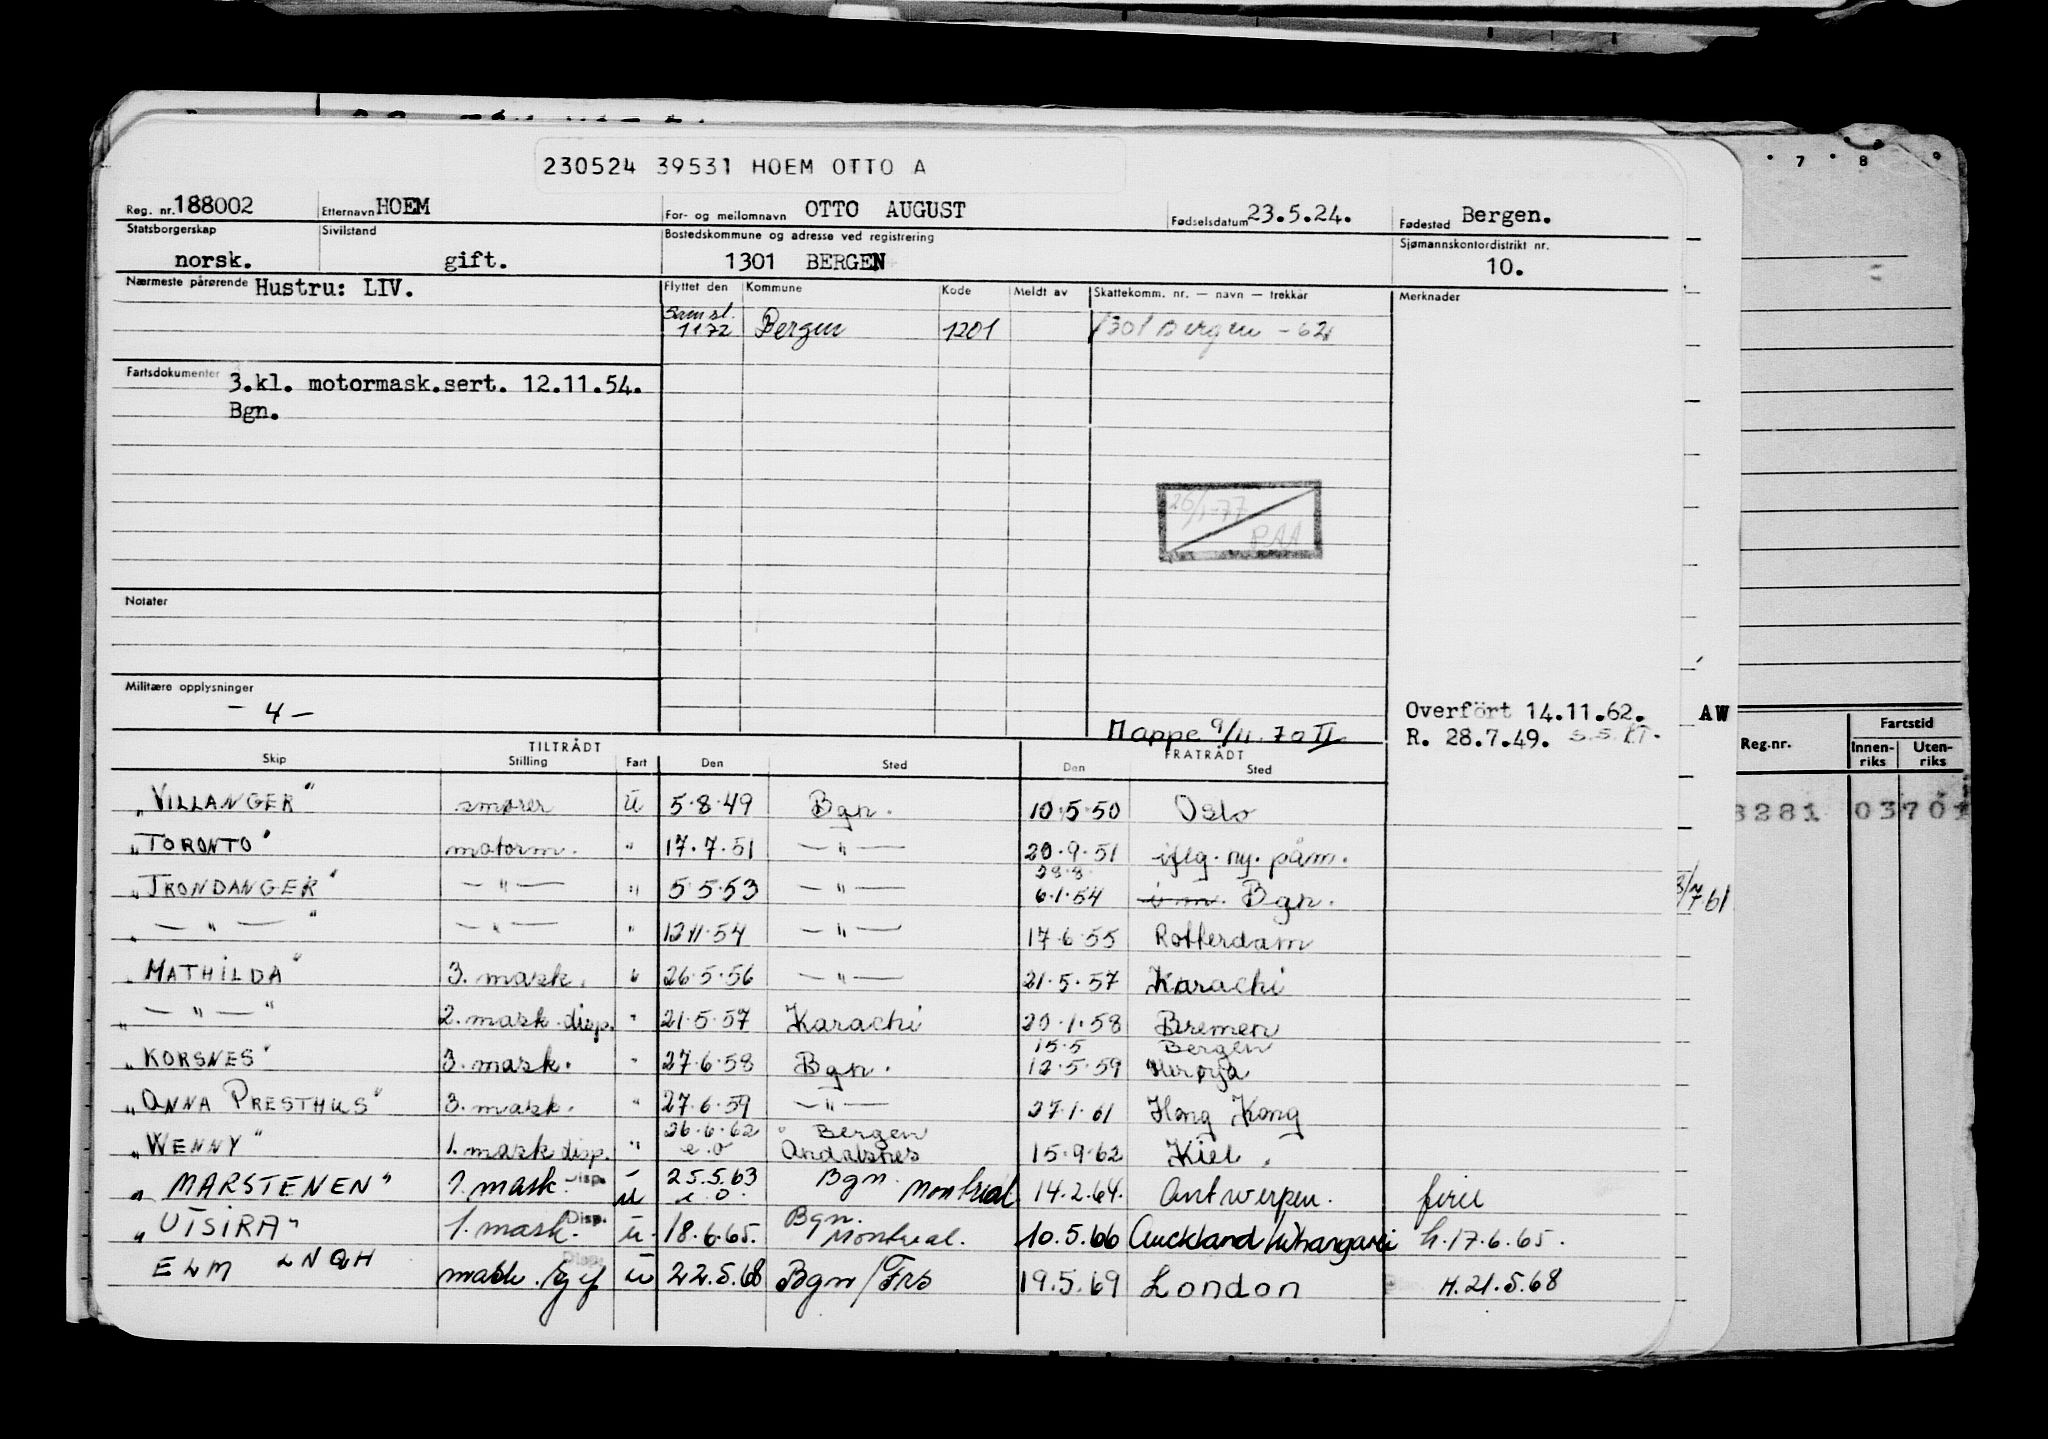 7 8 9
230524 39531 HOEM OTTO A
Reg. nr. 188002 Etternavn HOEM For- og mellomnavn OTTO AUGUST Fødselsdatum 23.5.24. Fødested Bergen.
Statsborgerskap Sivilstand Bostedskommune og adresse ved registrering Sjømannskontordistrikt nr.
norsk. gift. 1301 BERGEN 10.
Nærmeste pårørende Hustru: LIV. Flyttet den Kommune Kode Meldt av Skattekomm. nr. — navn — trekkår Merknader
Sam sl.
1172 Bergen 1201 1301 Bergen - 62
Fartsdokumenter 3.kl. motormask.sert. 12.11.54.
Bgn.
26/1-77
Notater
Militære opplysninger
- 4 -
Overført 14.11.62. AW
Mappe 9/11.70 R. 28.7.49. S.S.
TILTRÅDT FRATRÅDT
Skip Stilling Fart Den Sted Den Sted
Reg.nr. Fartstid
Innen-riks Uten-riks
"VILLANGER" smører u 5.8.49 Bgn. 10.5.50 Oslo
8281 03701
"TORONTO" motorm. " 17.7.51 — " — 20.9.51 iflg. ny. påm.
28.8
"TRONDANGER" — " — " 5.5.53 — " — 6.1.54 i m. Bgn.
" — " — " — " — " 12.11.54 — " — 17.6.55 Rotterdam
"MATHILDA" 3. mask. " 26.5.56 — " — 21.5.57 Karachi
" — " — " 2. mask. disp. " 21.5.57 Karachi 20.1.58 Bremen
15.5 Bergen
"KORSNES" 3. mask. " 27.6.58 Bgn. 12.5.59 Herøya
"ANNA PRESTHUS" 3. mask. " 27.6.59 — " — 27.1.61 Hong Kong
26.6.62 " Bergen
"WENNY" 1. mask disp. " e.o Åndalsnes 15.9.62 Kiel.
"MARSTENEN" 1. mask. Disp. u 25.5.63 Bgn. Montreal 14.2.64. Antwerpen. ferie
u e.o.
"UTSIRA" 1. mask. Disp. u. 18.6.65. Bgn. Montreal. 10.5.66 Auckland/Whangarei h.17.6.65.
ELM mask. u 22.5.68 Bgn/Frs 19.5.69 London H.21.5.68